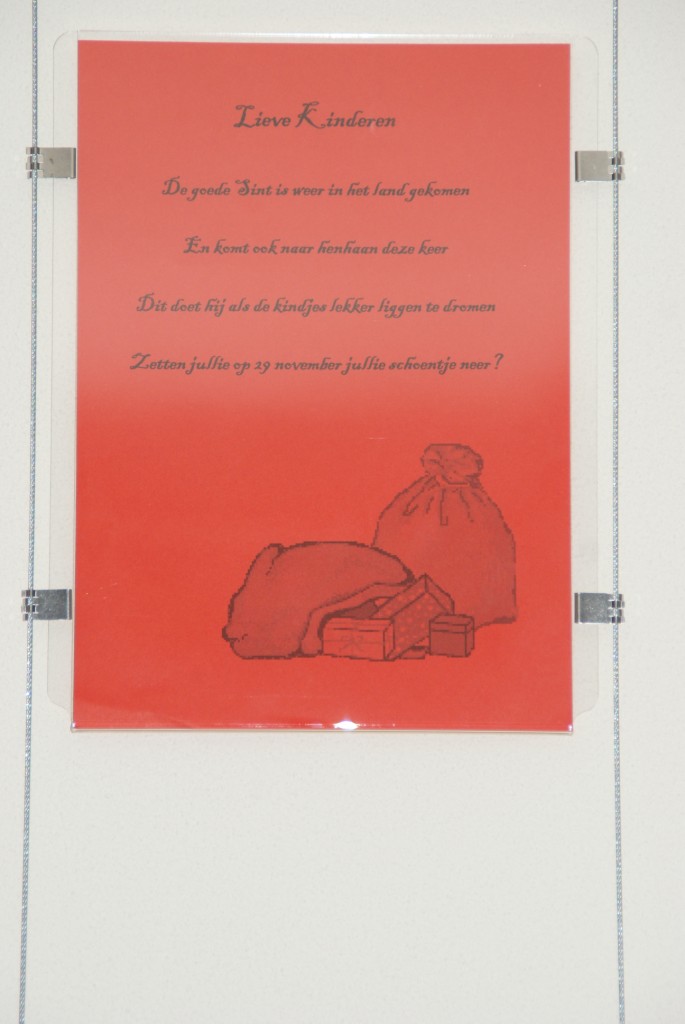 Lieve Kinderen
De goede Sint is weer in het land gekomen
En komt ook naar henhaan deze keer
Dit doet hij als de kindjes lekker liggen te dromen
Zetten jullie op 29 november jullie schoentje neer?